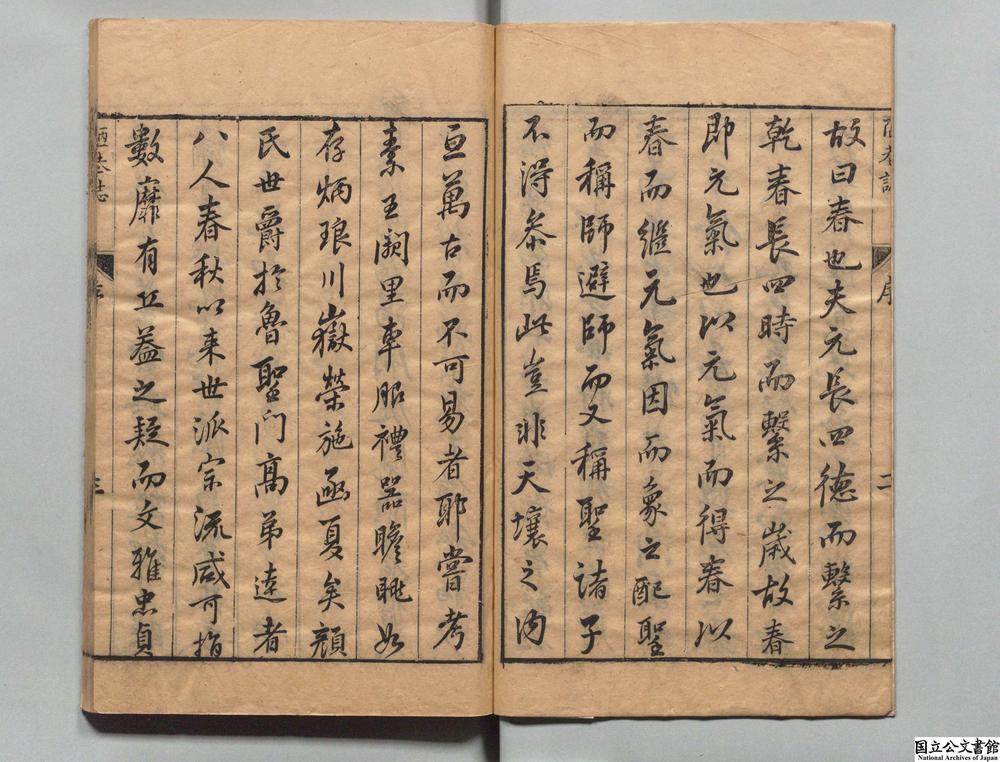 故曰春也夫元長四德而繫之
乾春長四時而繫之歲故春
即元氣也以元氣而得春以
春而繼元氣因而象之配聖
而稱師避師而又稱聖諸子
不得叅焉此豈非天壤之內
亘萬古而不可易者耶嘗考
素王闕里車服禮器瞻眺如
存炳琅川嶽榮施函夏矣顏
氏世爵於魯聖门高弟達者
八人春秋以来世派宗流咸可指
數靡有丘蓋之疑而文雅忠貞
陋巷志
序
二
陋巷志
序
三
国立公文書館
National Archives of Japan